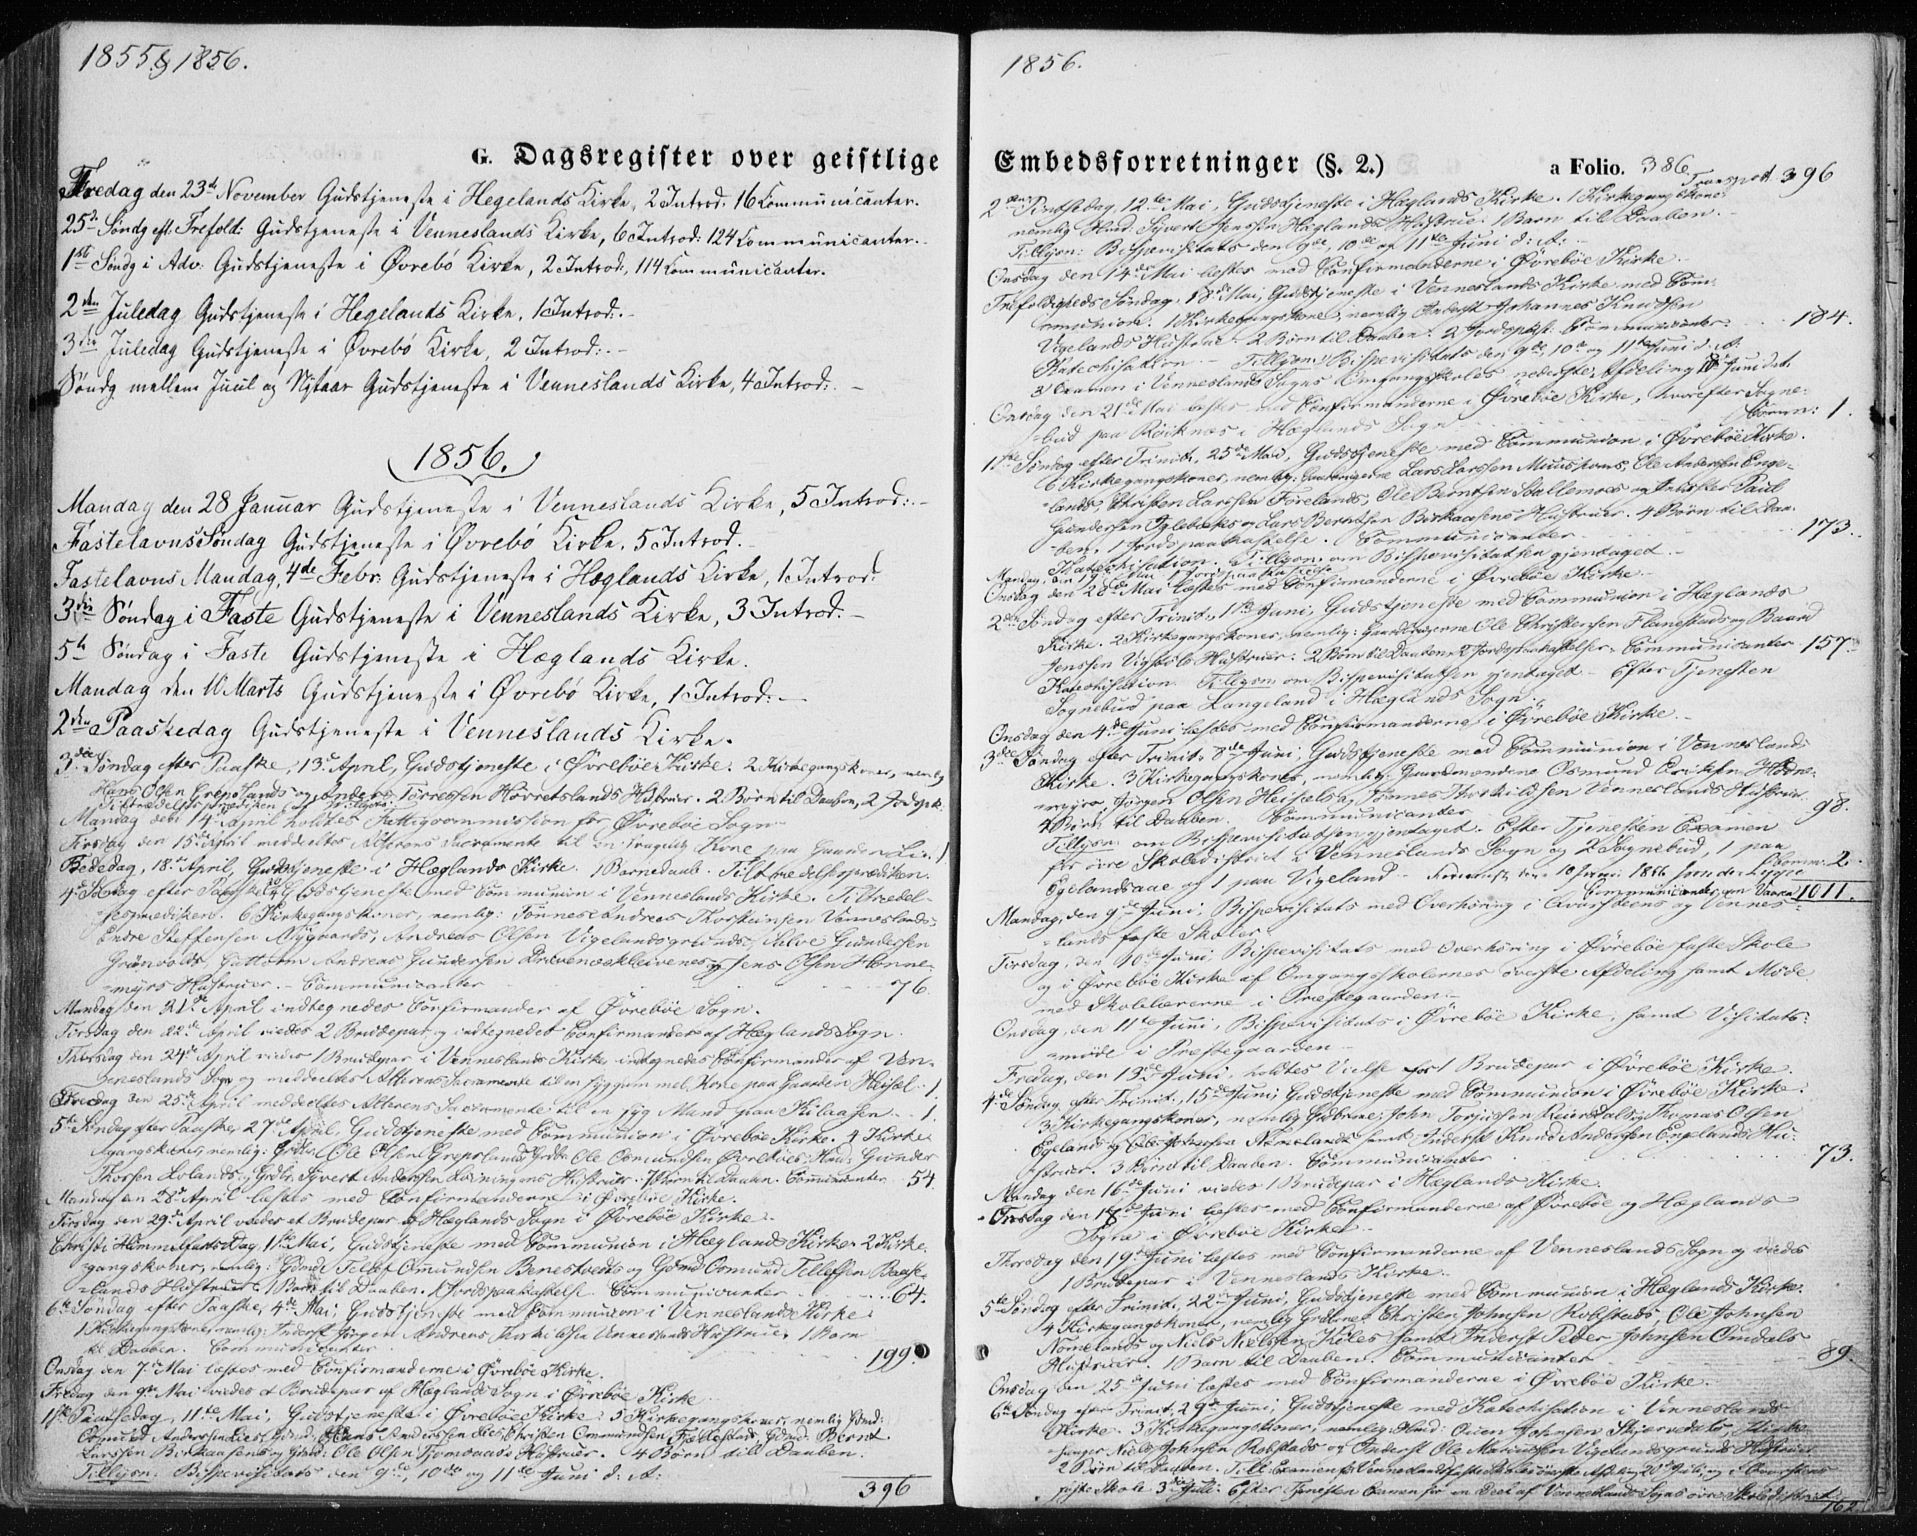 1855 & 1856.
G. Dagsregister over geistlige
Fredag den 23de November Gudstjeneste i Hegelands Kirke, 2 Introd: 16 Communicanter.
25de Søndg eft. Trefold: Gudstjeneste i Venneslands Kirke, 6 Introd: 124 Communicanter.
1ste Søndg i Adv: Gudstjeneste i Øvrebö Kirke, 2 Introd:, 114 Communicanter.
2den Juledag Gudstjeneste i Hegelands Kirke, 1 Introd:.
3die Juledag Gudstjeneste i Øvrebö Kirke, 2 Introd:.
Søndg mellem Juul og Nytaar Gudstjeneste i Venneslands Kirke, 4 Introd:.
1856.
Mandag den 28 Januar Gudstjeneste i Venneslands Kirke, 5 Introd:.
Fastelavns Søndag Gudstjeneste i Øvrebö Kirke, 5 Introd.
Fastelavns Mandag, 4de Febr. Gudstjeneste i Hæglands Kirke, 1 Introd:
3die Søndag i Faste Gudstjeneste i Venneslands Kirke, 3 Introd.
5te Søndag i Faste Gudstjeneste i Hæglands Kirke.
Mandag den 10 Marts Gudstjeneste i Øvrebö Kirke, 1 Introd:
2den Paaskedag Gudstjeneste i Venneslands Kirke.
3die Søndag efter Paaske, 13de April, Gudstjeneste i Øvrebøe Kirke. 2 Kirkegangskoner, nemlig
Hans Olsen Grepslands og Anders Tørressen Hovretslands Hustruer. 2 Børn til Daaben, 2 Jordspk.
Tiltrædelsesprædiken
Mandag den 14de April holdtes Fattigcommission for Øvrebøe Sogn
Tirsdag den 15de April meddeeltes Alterens Sacramente til en Kone paa Gaarden 1
Bededag, 18de April, Gudstjeneste i Hæglands Kirke. 1 Barnedaab. Tiltrædelsesprædiken.
4de Søndag efter Paaske, Gudstjeneste med Communion i Venneslands Kirke. Tiltrædel-
sesprædiken. 6 Kirkegangskoner, nemlig: Tönnes Andreas Venneslands,
Endre Steffensen Nygaards, Andreas Olsen Vigelandsgrunds, Salve Gundersen
Grønvolds, Guttorm Andreas Gundersen Drivenæskleivenes og Jens Olsen Honne-
myrs Hustruer. Communicanter 76.
Mandag den 21de April indtegnedes Confirmander af Øvrebøe Sogn.
Tirsdag den 22de April viedes 2 Brudepar og indtegnedes Confirmander af Hæglands Sogn
Thorsdag den 24de April viedes 1 Brudepar i Venneslands Kirke indtegnedes Confirmander af Ven-
neslands Sogn og meddeeltes Alterens Sacramente til en syg Kone paa Gaarden Heisel. 1.
Fredag den 25de April meddeeltes Alterens Sacramente til en syg Mand paa Kilaasen 1.
5te Søndag efter Paaske, 27de April, Gudstjeneste med Communion i Øvrebøe Kirke. 4 Kirke-
gangskoner, nemlig: Ole Olsen Grepslands, Ole Osmundsen Øvrebøes, Gunder
Thorsen Lolands og Sjvert Andersen Hustruer. Børn til Daaben. Communicanter 54.
Mandag den 28de April læstes med Confirmanderne i Øvrebøe Kirke.
Tirsdag den 29de April viedes et Brudepar af Hæglands Sogn i Øvrebøe Kirke.
Christi Himmelfarts Dag, 1ste Mai, Gudstjeneste med Communion i Hæglands Kirke. 2 Kirke-
gangskoner, nemlig: Gbmd Tellef Osmundsen Benestveds og Gbmd Osmund Tellefsen Baase-
lands Hustruer. 1 Barn til Daaben. 1 Jordspaakastelse. Communicanter 64.
6te Søndag efter Paaske, 4de Mai, Gudstjeneste med Communion i Venneslands Kirke
1 Kirkegangskone, nemlig: Inderst Jörgen Andreas Venneslands Hustrue. 1 Barn
til Daaben. Communicanter 199.
Onsdag den 7de Mai læstes med Confirmanderne i Øvrebøe Kirke.
Fredag den 9de Mai viedes et Brudepar af Hæglands Sogn i Øvrebøe Kirke.
1ste Pindsedag, 11te Mai, Gudstjeneste i Øvrebøe Kirke. 5 Kirkegangskoner, nemlig Gbmd:
Osmund Anderssen Christen Osmundsen Fjellestad, Gbmd: Bernt
Larssen Birkaasens og Gbmd: Ole Olsen Hustruer. 4 Børn til Daaben.
Tillysn: Bispevisitats den 9de, 10de og 11te Juni d. A:
396
1856.
Embedsforretninger (§. 2.) a Folio. 386. Transport 396
2den Pindsedag, 12te Mai, Gudstjeneste i Hæglands Kirke. 1 Kirkegangskone
nemlig Hmd: Syvert Jensen Hæglands Hustrue. 1 Barn til Daaben.
Tillysn: Bispevisitats den 9de, 10de og 11te Juni d: A:
Onsdag den 14de Mai læstes med Confirmanderne i Øvrebøe Kirke.
Trefoldigheds Søndag, 18de Mai, Gudstjeneste i Venneslands Kirke med Com-
munion. 1 Kirkegangskone, nemlig Inderst Johannes Knudsen
Vigelands Hustrue. 2 Børn til Daaben. 2 Jordspkst. Communicanter: 184.
Katechisation. Tillysn: Bispevisitats den 9de, 10de og 11te Juni d: A:
Examen i Venneslands Sogns Omgangsskoles nederste Afdeling
Onsdag den 21de Mai læstes med Confirmanderne i Øvrebøe Kirke, hvorefter Sogne-
bud paa Röiknæs i Hæglands Sogn Comm: 1.
1ste Søndag efter Trinit., 25de Mai, Gudstjeneste med Communion i Øvrebøe Kirke.
6 Kirkegangskoner, nemlig: Lars Larssen Ole Andersen Enge-
lands, Christen Larssen Førelands, Ole Berntsen Stallemoes og Inderster Paul
Gundersen Iglebækes og Lars Berntsen Birkaasens Hustruer. 4 Børn til Daa-
ben. 1 Jordspaakastelse. Communicanter 173.
Katechisation. Tillysn: om Bispevisitatsen gjentaget.
Mandag, den 19de Mai 1 Jordspaakastelse
Onsdag den 28de Mai læstes med Confirmanderne i Øvrebøe Kirke.
2den Søndag efter Trinit., 1ste Juni, Gudstjeneste med Communion i Hæglands
Kirke. 2 Kirkegangskoner, nemlig: Gaardbrugerne Ole Christensen Flanestads og Baard
Jenssen Vigstøls Hustruer. 2 Børn til Daaben. 2 Jordspaakastelser. Communicanter 157.
Katechisation. Tillysn om Bispevisitatsen gjentaget. Efter Tjenesten
Sognebud paa Langeland i Hæglands Sogn.
Onsdag den 4de Juni læstes med Confirmanderne i Øvrebøe Kirke.
3die Søndag efter Trinit: 8de Juni, Gudstjeneste med Communion i Venneslands
Kirke. 3 Kirkegangskoner, nemlig: Gaardmændene Osmund Eriksen Honne-
myrs, Jörgen Olsen Heisels og Tönnes Thorkildsen Venneslands Hustruer.
Børn til Daaben. Communicanter 98.
Tillysn: om Bispevisitatsen gjentaget. Efter Tjenesten Examen
for øvre Skoledistrict i Venneslands Sogn og 2 Sognebud, 1 paa
Egelandsaae og 1 paa Vigeland. Comm: 2.
Communicanter om Vaaren 1011.
Mandag, den 9de Juni, Bispevisitats med Overhøring i Qvarsteens og Vennes-
lands faste Skoler.
Tirsdag, den 10de Juni, Bispevisitats med Overhøring i Øvrebøe faste Skole
og i Øvrebøe Kirke af Omgangsskolernes øverste Afdeling samt Møde
med Skolelærerne i Præstegaarden.
Onsdag, den 11te Juni, Bispevisitats i Øvrebøe Kirke, samt Visitats-
møde i Præstegaarden
Fredag, den 13de Juni, holdtes Vielse for 1 Brudepar i Øvrebøe Kirke.
4de Søndag efter Trinit., 15de Juni, Gudstjeneste med Communion i Øvrebøe Kirke.
3 Kirkegangskoner, nemlig Gbrne: John Torjussen Reiersdals, Thomas Olsen
Egelands samt Inderst Knud Andersen Engelands Hu-
struer. 3 Børn til Daaben. Communicanter 73.
Mandag den 16de Juni viedes 1 Brudepar i Hæglands Kirke.
Onsdag den 18de Juni læstes med Confirmanderne af Øvrebøe og Hæglands
Sogne i Øvrebøe Kirke.
Thorsdag den 19de Juni læstes med Confirmanderne af Venneslands Sogn og viedes
1 Brudepar i Venneslands Kirke.
5te Søndag efter Trinit., 22de Juni, Gudstjeneste med Communion i Hæglands Kirke.
4 Kirkegangskoner, nemlig Gbrne: Christen Johnsen Robstads, Ole Johnsen
Nomelands og Niels Nielsen Kiles samt Inderst Peder Johnsen Omdals
Hustruer. 1 Barn til Daaben. Communicanter 89.
Onsdag den 25de Juni læstes med Confirmanderne i Øvrebøe Kirke.
6te Søndag efter Trinit., 29de Juni, Gudstjeneste med Katechisation i Venneslands
Kirke. 3 Kirkegangskoner, nemlig Hmd: Ouen Johnsen Skjerredals, Kirke-
sanger Niels Johnsen Robstads og Inderst Ole Mathiassen Vigelandsgrunds Hustruer.
2 Børn til Daaben. Till: Examen i Venneslands faste Skoles øverste Afdeling
faste Skole 3die Juli. Efter Tjenesten Examen for en Deel af Venneslands Sogns øvre Skoledistrict
162